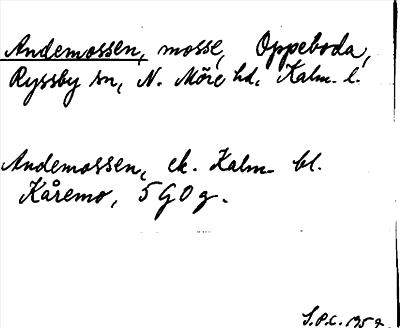 Andemossen, mosse, Oppeboda,
Ryssby sn, N. Möre hd, Kalm. l.
Andemossen, ek. Kalm. bl.
Kåremo, 5 G 0 g.
S.P.C. 1959.